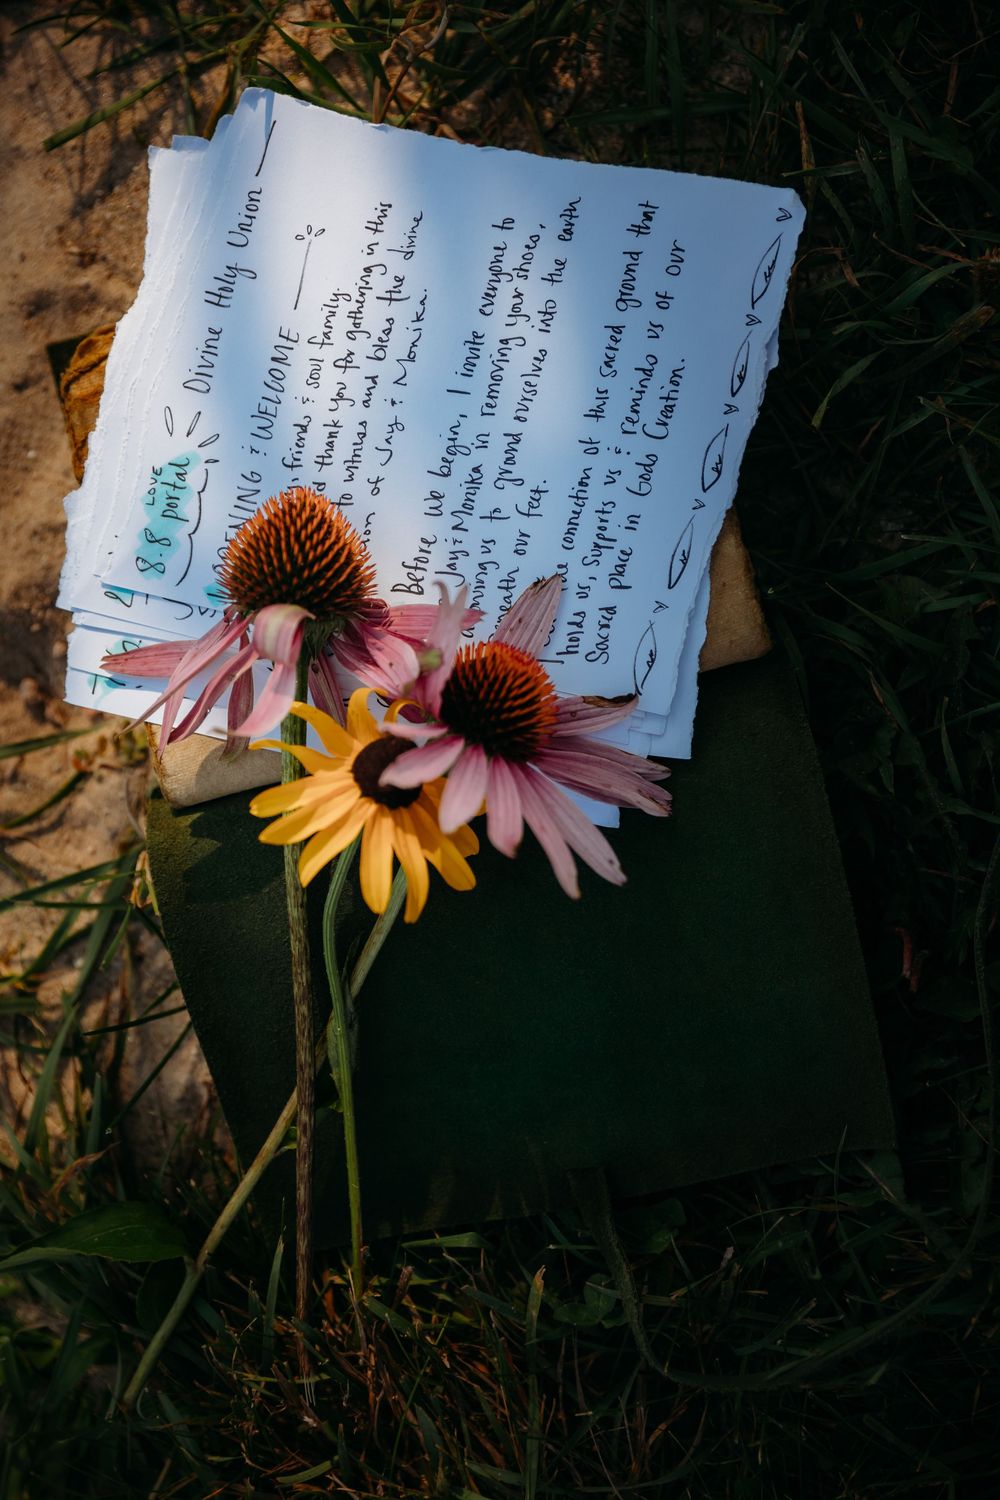 8.8 LOVE portal
Divine Holy Union
NING & WELCOME
friends & soul family.
thank you for gathering in this
to witness and bless the divine
of Jay & Monika.
Before we begin, I invite everyone to
Jay & Monika in removing your shoes,
us to ground ourselves into the earth
our feet.
connection of this sacred ground that
holds us, supports us & reminds us of our
Sacred place in Gods Creation.